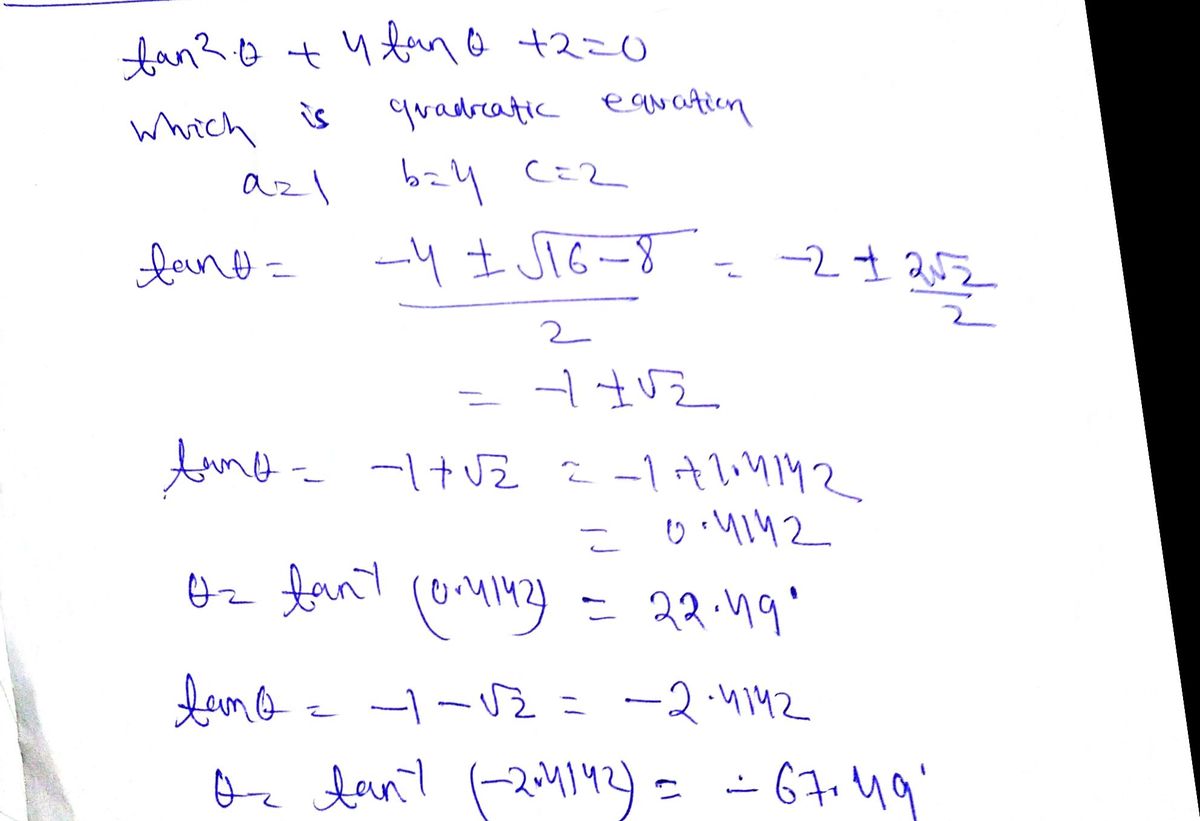 tan²θ + 4 tan θ + 2 = 0
which is quadratic equation
a=1 b=4 c=2
tanθ = (-4 ± √(16-8))/2 = -2 ± 2√2/2
= -1 ± √2
tanθ = -1+√2 = -1+1.4142
= 0.4142
θ = tan⁻¹ (0.4142) = 22.49°
tanθ = -1-√2 = -2.4142
θ = tan⁻¹ (-2.4142) = -67.49°